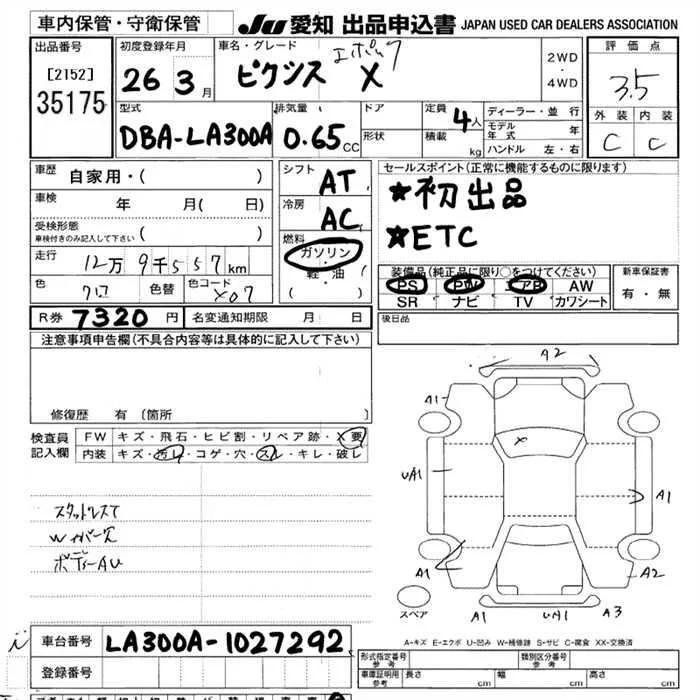 車内保管・守衛保管 JU 愛知 出品申込書 JAPAN USED CAR DEALERS ASSOCIATION
出品番号 [2152] 35175
初度登録年月 26 3月
車名・グレード ピクシス エポック X
2WD・4WD
評価点 3.5
外装 内装
C C
型式 DBA-LA300A
排気量 0.65 CC
ドア
形状
定員 4人
積載 kg
ディーラー・並行
モデル年式 年
ハンドル 左・右
車歴 自家用・( )
車検 年 月( 日)
受検形態 ( )
車検付きのみ記入して下さい
走行 12万9千557km
色 クロ 色替 色コード X07
シフト AT
冷房 AC
燃料 ガソリン・軽・油
( )
セールスポイント(正常に機能するものに限ります)
★初出品
★ETC
装備品(純正品に限り○をつけてください)
PS PW エアB AW
SR ナビ TV カワシート
新車保証書
有・無
R券 7320円 名変通知期限 月 日
後日品
注意事項申告欄(不具合内容等は具体的に記入して下さい)
修復歴 有 〔箇所
検査員記入欄
FW キズ・飛石・ヒビ割・リペア跡・X要
内装 キズ・汚レ・コゲ・穴・スレ・キレ・破レ
スタットレスT
ボディーAU
A2
A1
UA1 A1
A1 A2
スペア A1 UA1 A3
A-キズ E-エクボ U-凹み W-補修跡 S-サビ C-腐食 XX-交換済
車台番号 LA300A-1027292
登録番号
形式指定番号 参考 類別区分番号 参考
車庫証明用 参考 長さ cm 幅 cm 高さ cm